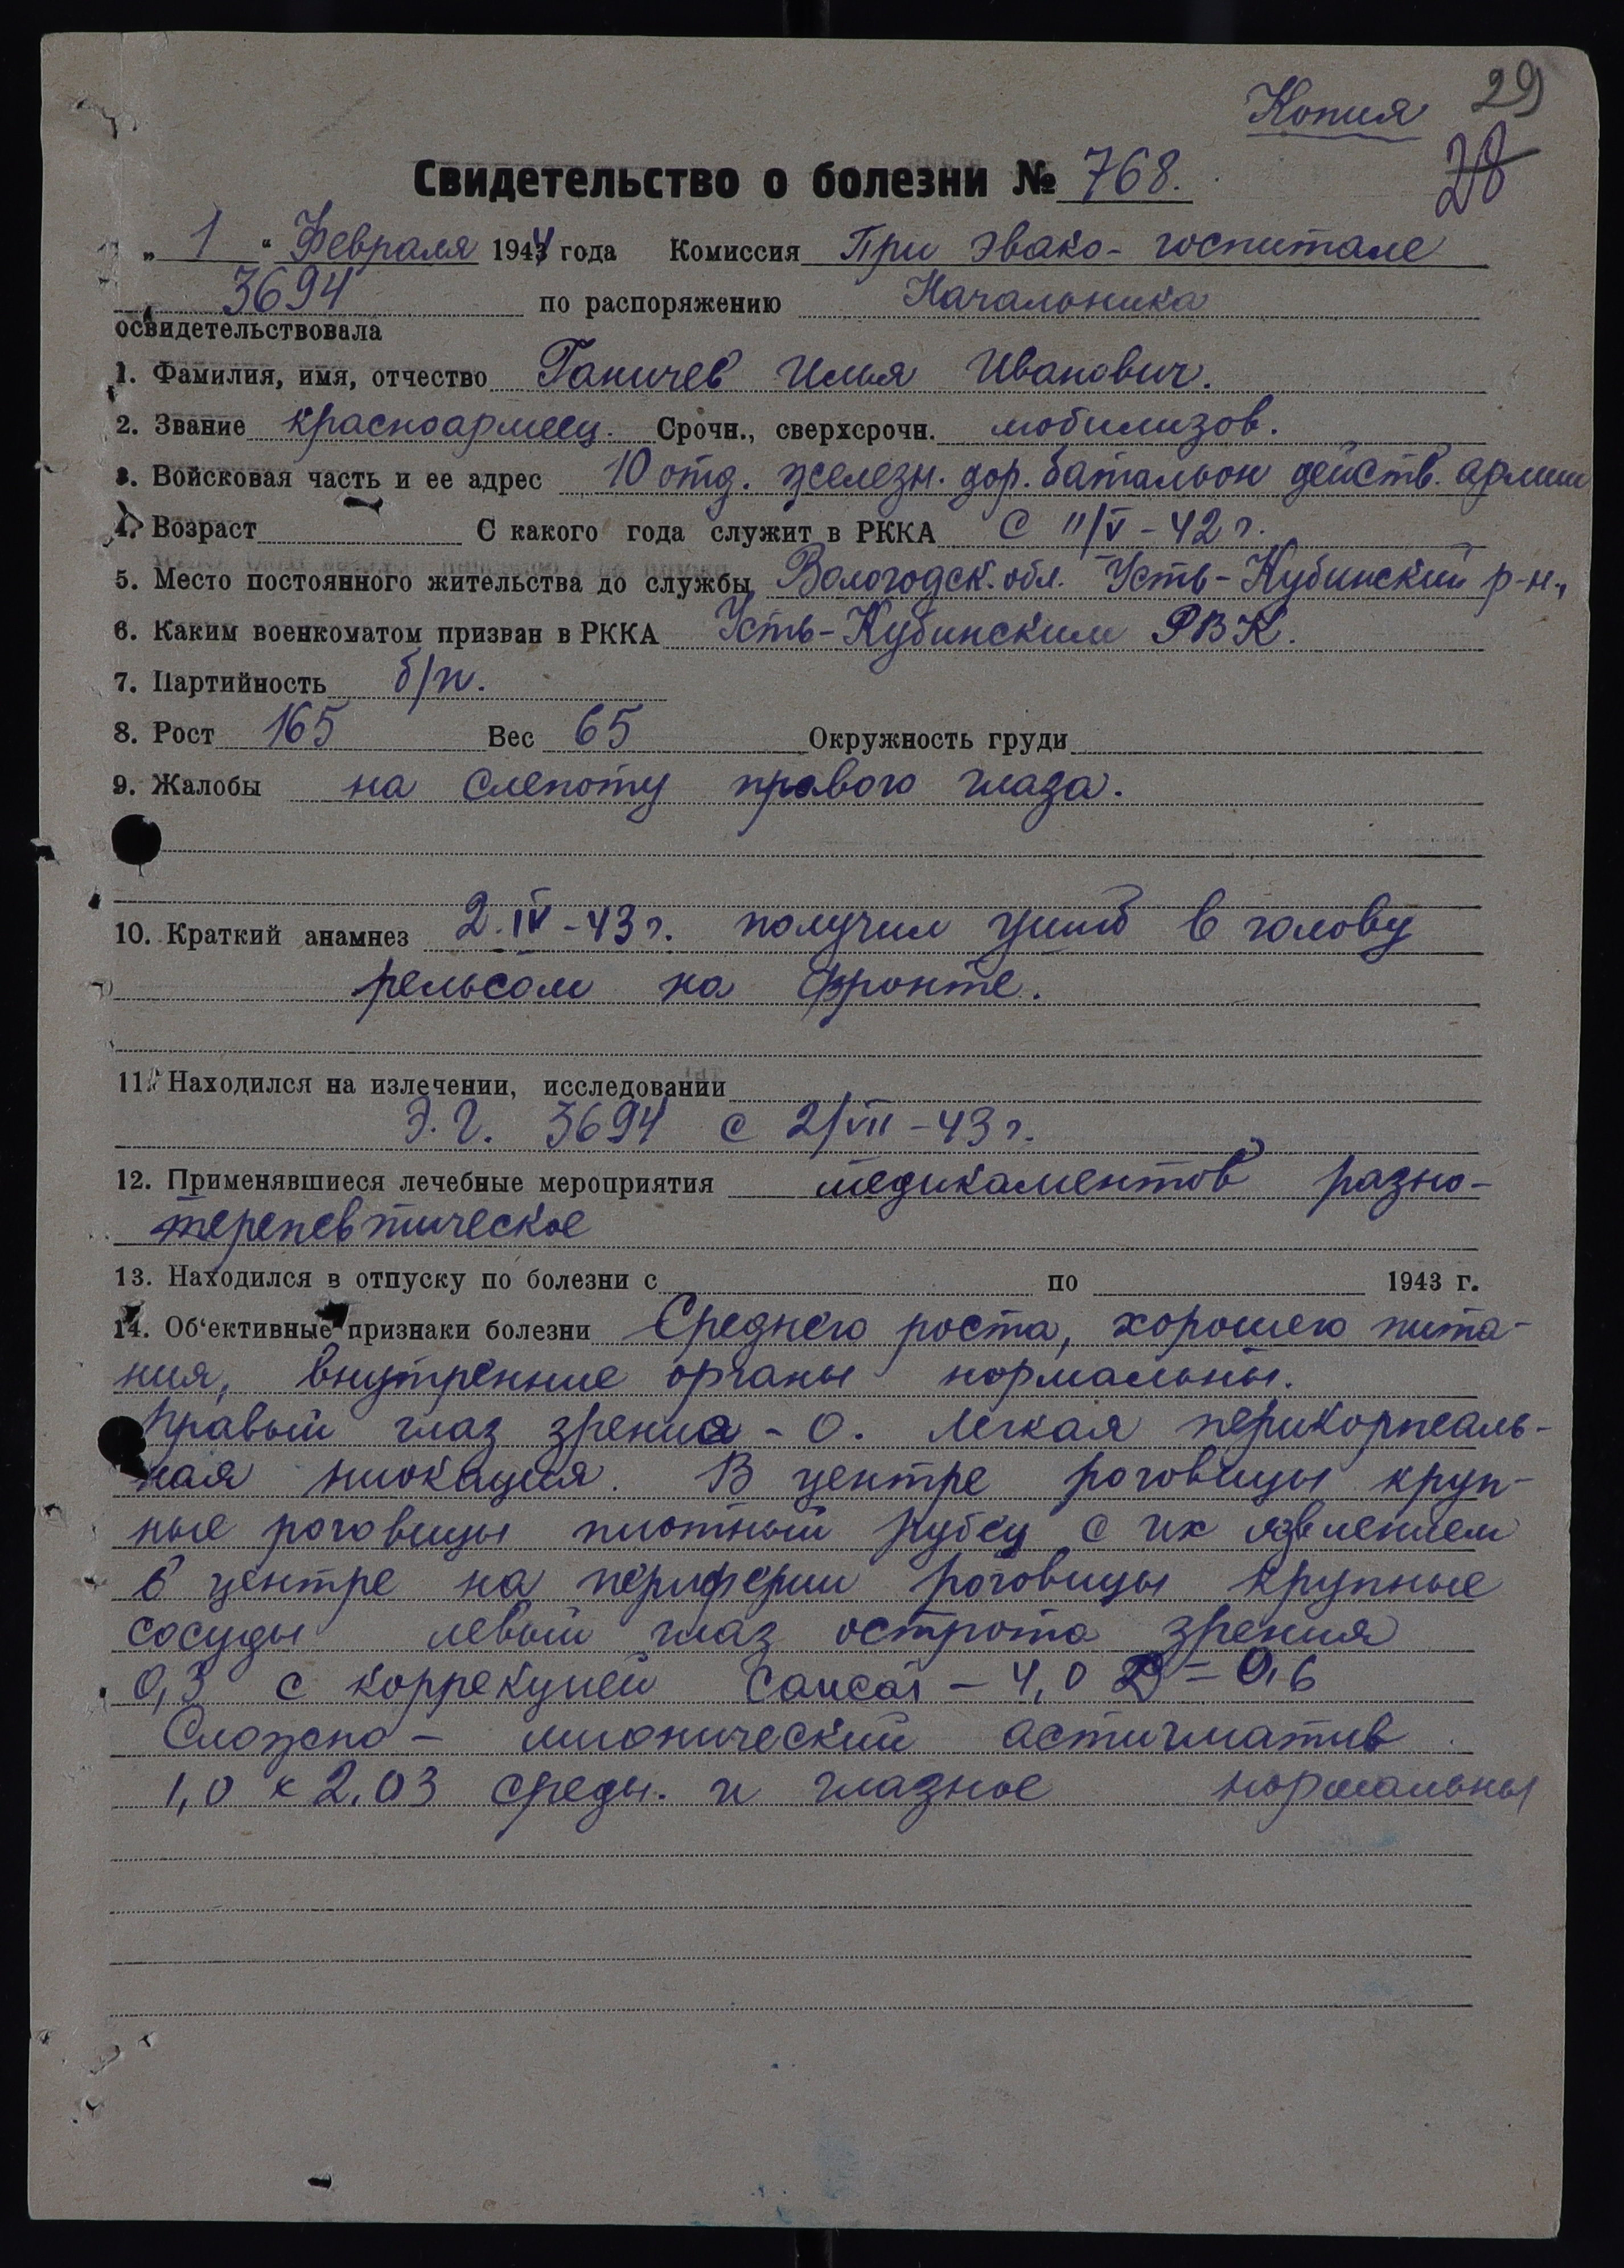 Копия 29
28
Свидетельство о болезни № 768.
„ 1 “ Февраля 1944 года Комиссия При эвако- госпитале
3694 по распоряжению Начальника
освидетельствовала
1. Фамилия, имя, отчество Ганичев Илья Иванович.
2. Звание красноармеец. Срочн., сверхсрочн. мобилизов.
3. Войсковая часть и ее адрес 10 отд. железн. дор. батальон действ. армии
4. Возраст С какого года служит в РККА С 11/V - 42 г.
5. Место постоянного жительства до службы Вологодск. обл. Усть-Кубинский р-н.,
6. Каким военкоматом призван в РККА Усть-Кубинским РВК.
7. Партийность б/п.
8. Рост 165 Вес 65 Окружность груди
9. Жалобы на слепоту правого глаза.
10. Краткий анамнез 2. IV - 43 г. получил ушиб в голову
рельсом на фронте.
11. Находился на излечении, исследовании
Э. Г. 3694 с 2/VII - 43 г.
12. Применявшиеся лечебные мероприятия медикаментов разно-
терепевтическое
13. Находился в отпуску по болезни с по 1943 г.
14. Об‘ективные признаки болезни Среднего роста, хорошего пита-
ния, внутренние органы нормальны.
правый глаз зрениа - 0. Легкая перикорнеаль-
ная В центре роговицы круп-
ные роговицы плотный рубец с их явлением
в центре на периферии роговицы крупные
сосуды левый глаз острота зрения
0,3 с коррекцией - 4,0 D = 0,6
Сложно - миопический астигматив
1,0 х 2,03 среды. и глазное нормальны